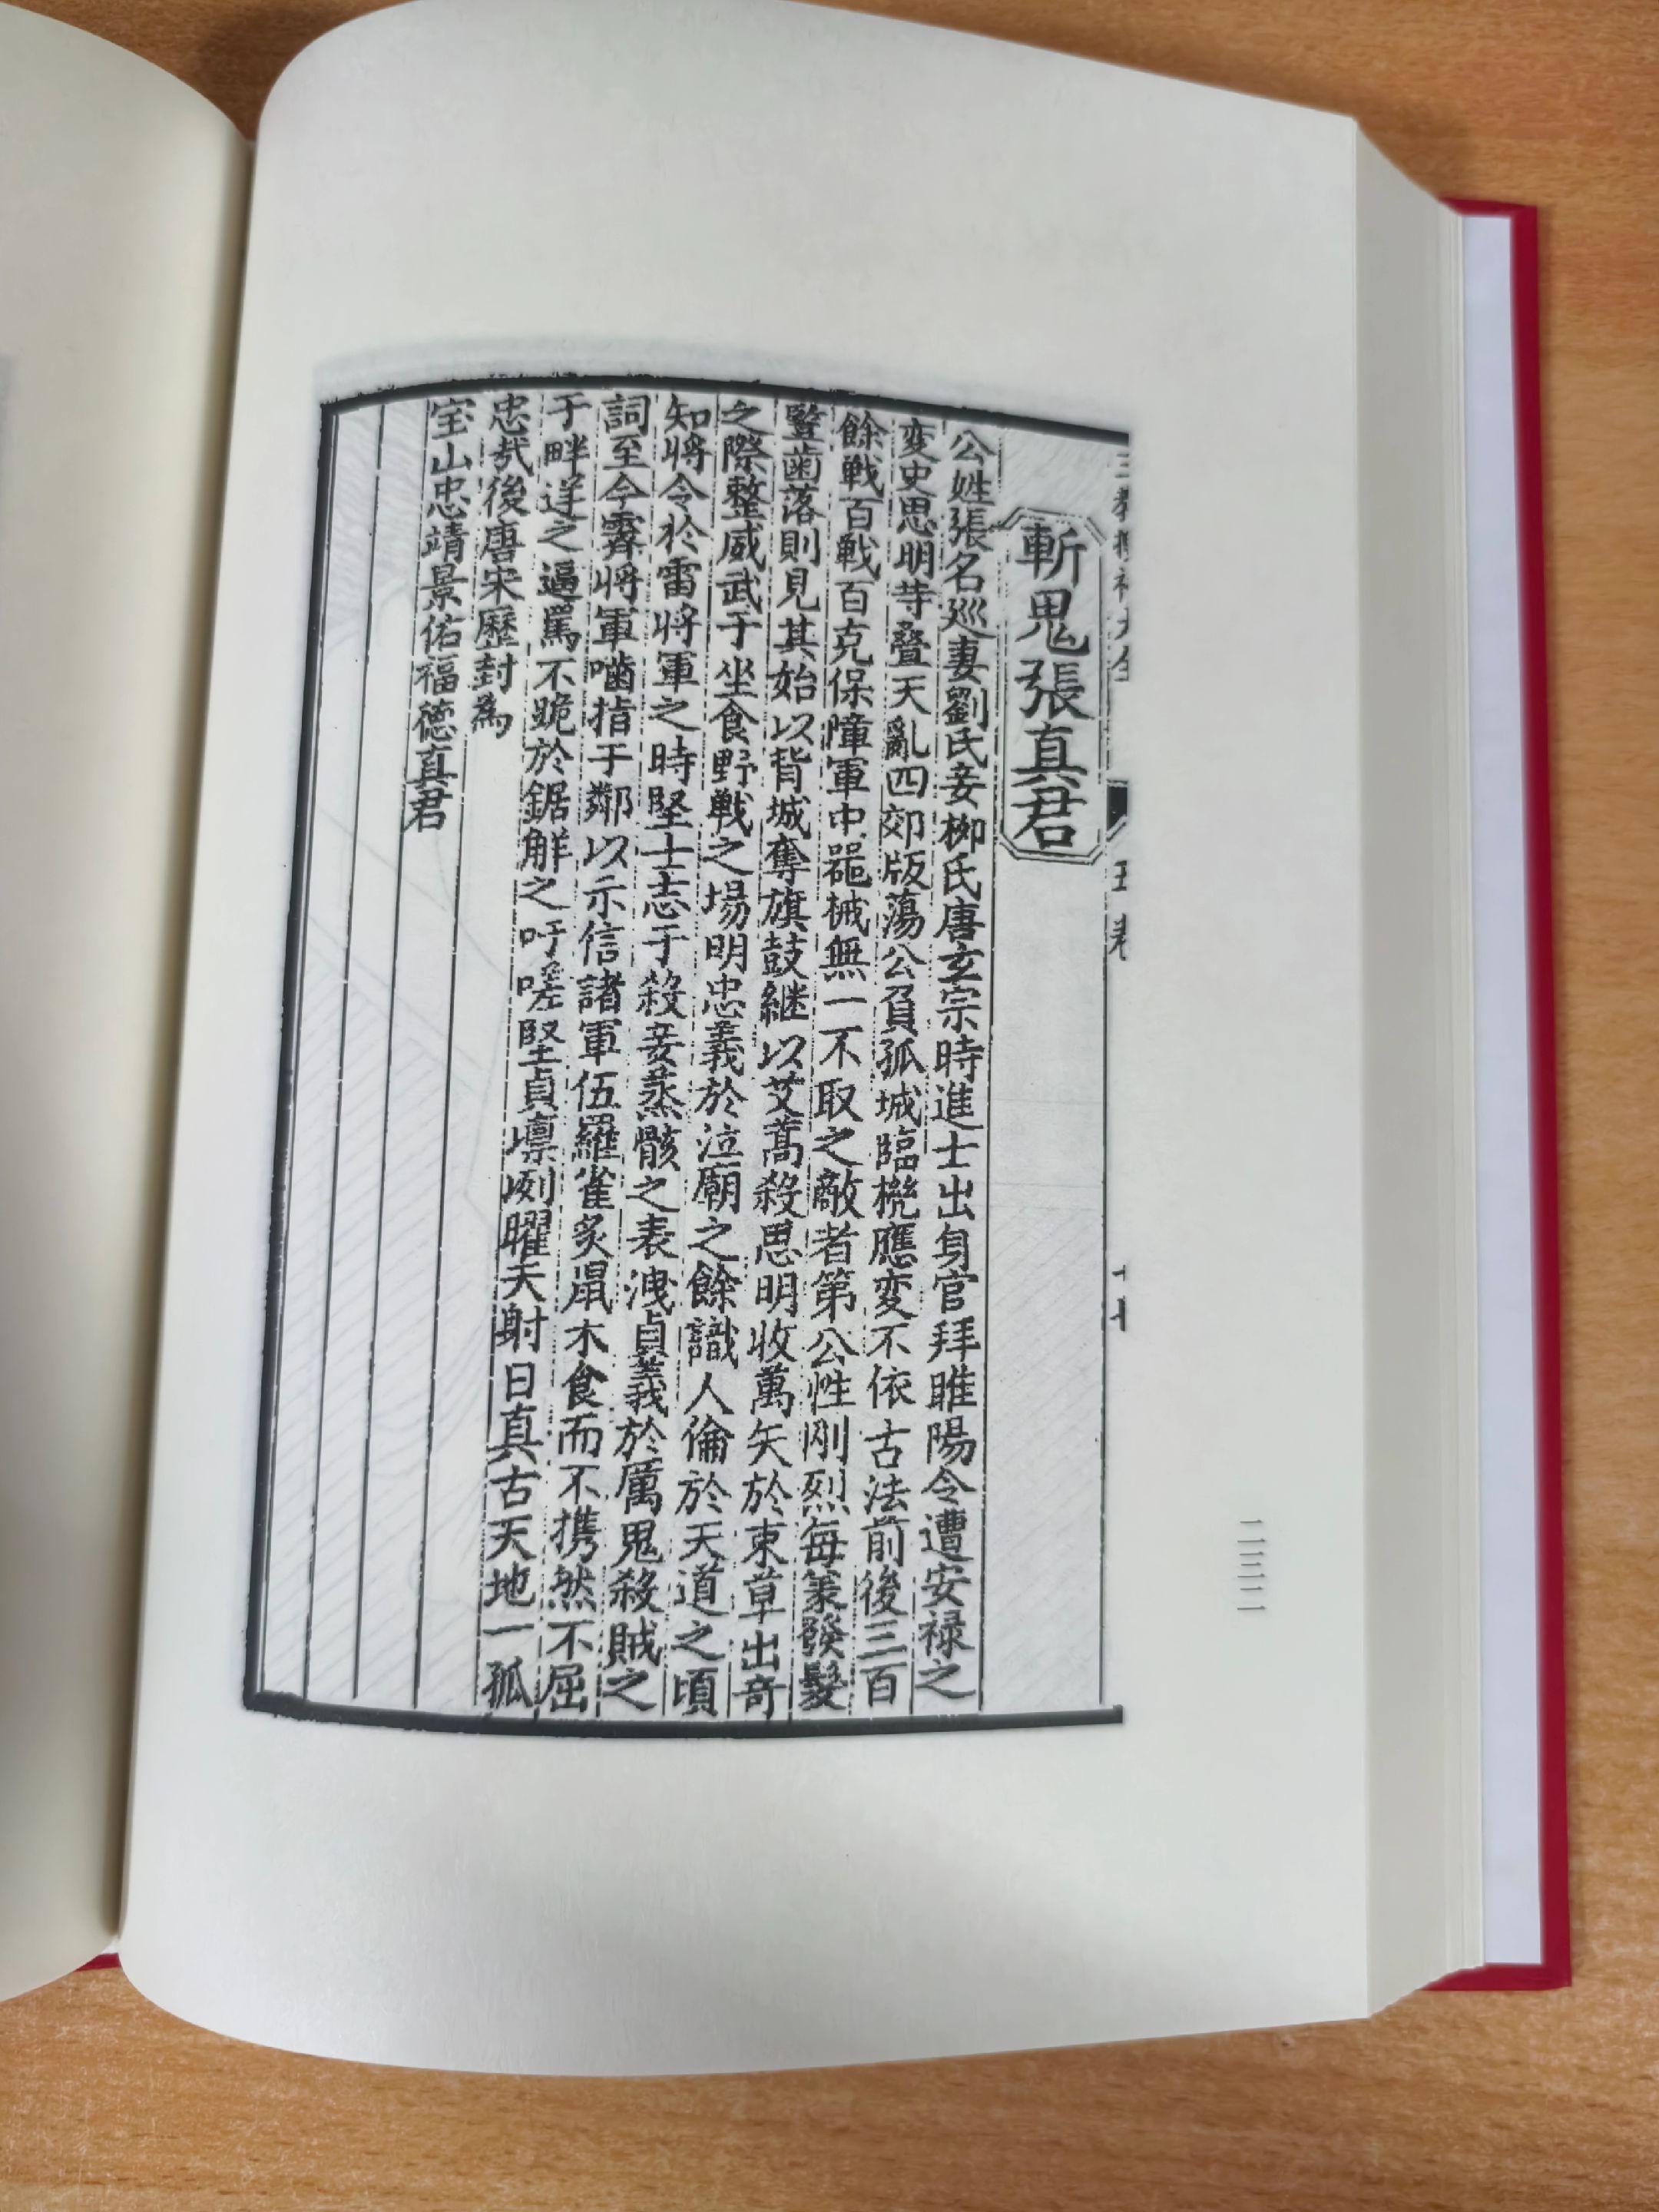 斬鬼張真君
公姓張名廵妻劉氏妾栁氏唐玄宗時進士出身官拜睢陽令遭安禄之
变史思明䓁叠天亂四郊版蕩公負孤城臨機應変不依古法前後三百
餘戰百戰百克保障軍中噐械無一不取之敵者第公性刚烈每䇿發髮
豎齒落則見其始以背城奪旗鼓継以艾蒿殺思明收萬矢於束草出奇
之際整威武于坐食野戰之場明忠義於泣廟之餘識人倫於天道之頃
知將令於雷將軍之時堅士志于殺妾蒸骸之表洩貞義於厲鬼殺賊之
詞至今霽將軍嚙指于鄰以示信諸軍伍羅雀炙鼠木食而不攜然不屈
于畔逆之逼罵不跪於鋸觧之吁嗟堅貞凛冽曜天射日真古天地一孤
忠㦲後唐宋歷封為
宝山忠靖景佑福德真君
二三二